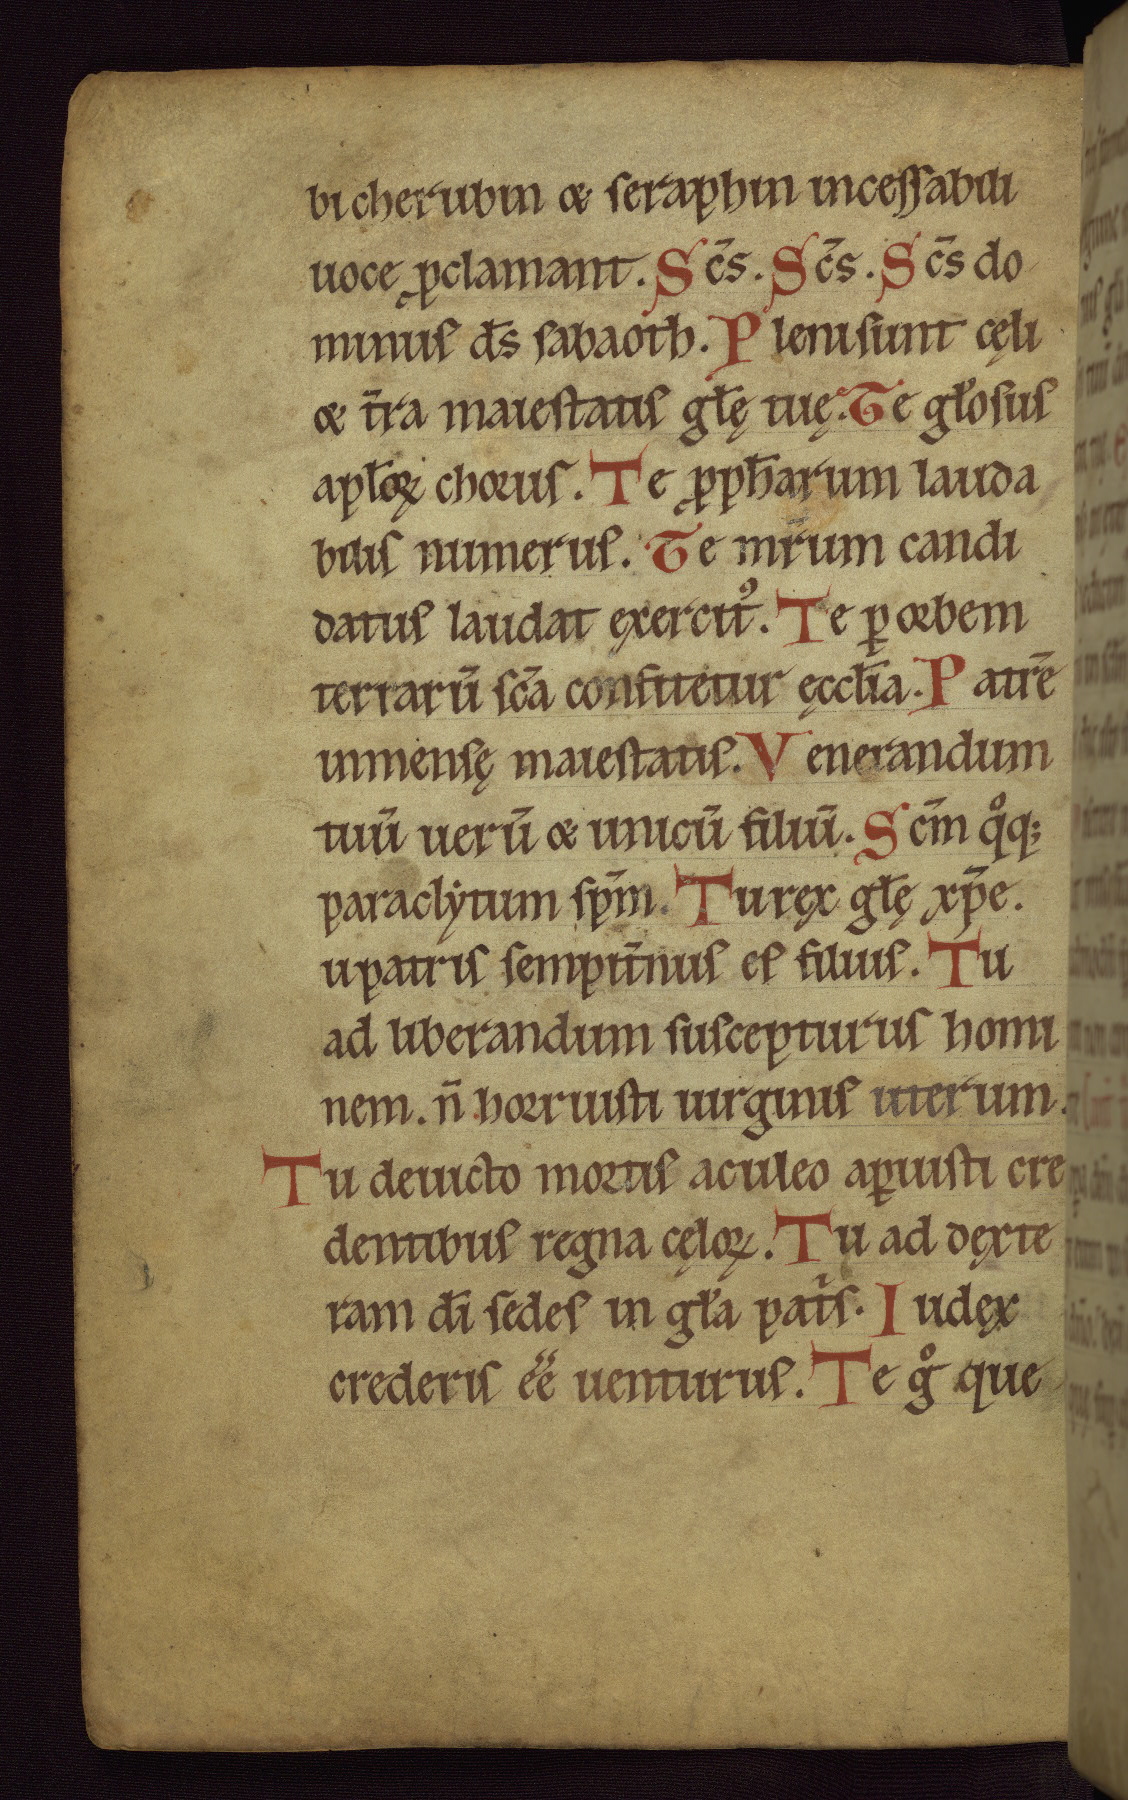 bi cherubin & seraphin incessabili
uoce ꝓclamant. Sc̄s. Sc̄s. Sc̄s do
minus d̄s sabaoth. Pleni sunt cęli
& t̄ra maiestatis gl̄ę tuę. Te gl̄osus
apl̄oꝝ chorus. Te ꝓph̄arum lauda
bilis numerus. Te mr̄um candi
datus laudat exercit᷒. Te ꝑ orbem
terrarū sc̄a confitetur ęccl̄ia. Patrē
inmensę maiestatis. Venerandum
tuū uerū & unicū filiū. Sc̄m qͦq;
paraclẏtum sp̄m. Tu rex gl̄ę xp̄e.
u patris sempit̄nus es filius. Tu
ad liberandum suscepturus homi
nem. n̄ horruisti uirginis uterum.
Tu deuicto mortis aculeo aꝑuisti cre
dentibus regna cęloꝝ. Tu ad dexte
ram dī sedes in gl̄a pat̄s. Iudex
crederis ēē uenturus. Te gͦ que